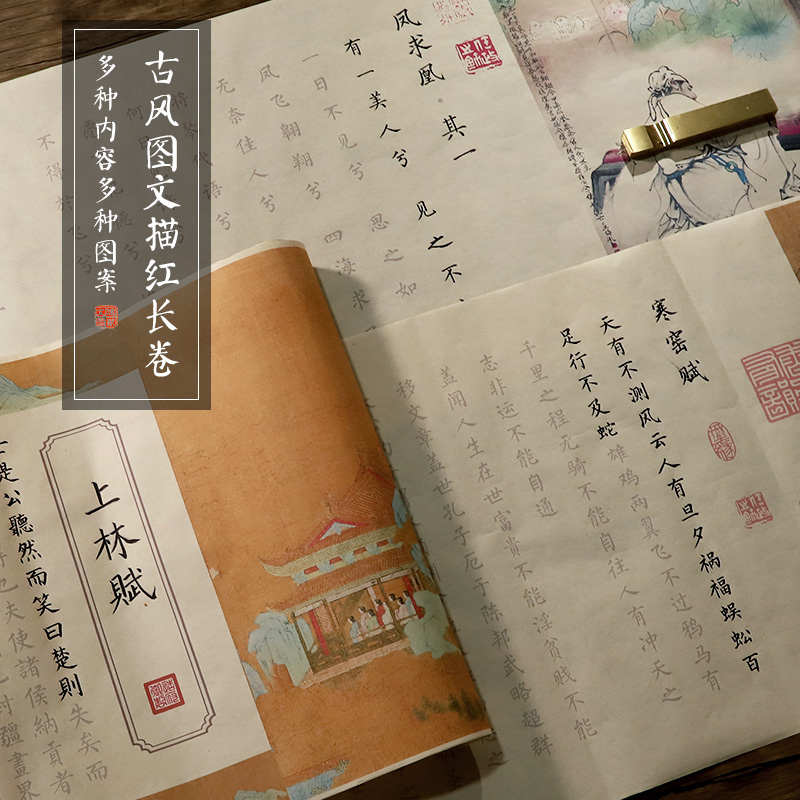 古风图文描红长卷
多种内容多种图案
凤求凰 其一
有一美人兮 见之不
一日不见兮 思之如
凤飞翱翔兮 四海求
无奈佳人兮
将琴代语兮
不得
寒窑赋
天有不测风云人有旦夕祸福蜈蚣百
足行不及蛇雄鸡两翼飞不过鸦马有
千里之程无骑不能自往人有冲天之
志非运不能自通
盖闻人生在世富贵不能淫贫贱不能
移文章盖世孔子厄于陈邦武略超群
上林賦
是公聽然而笑曰楚則失矣而
也夫使諸侯納貢者
封疆畫界